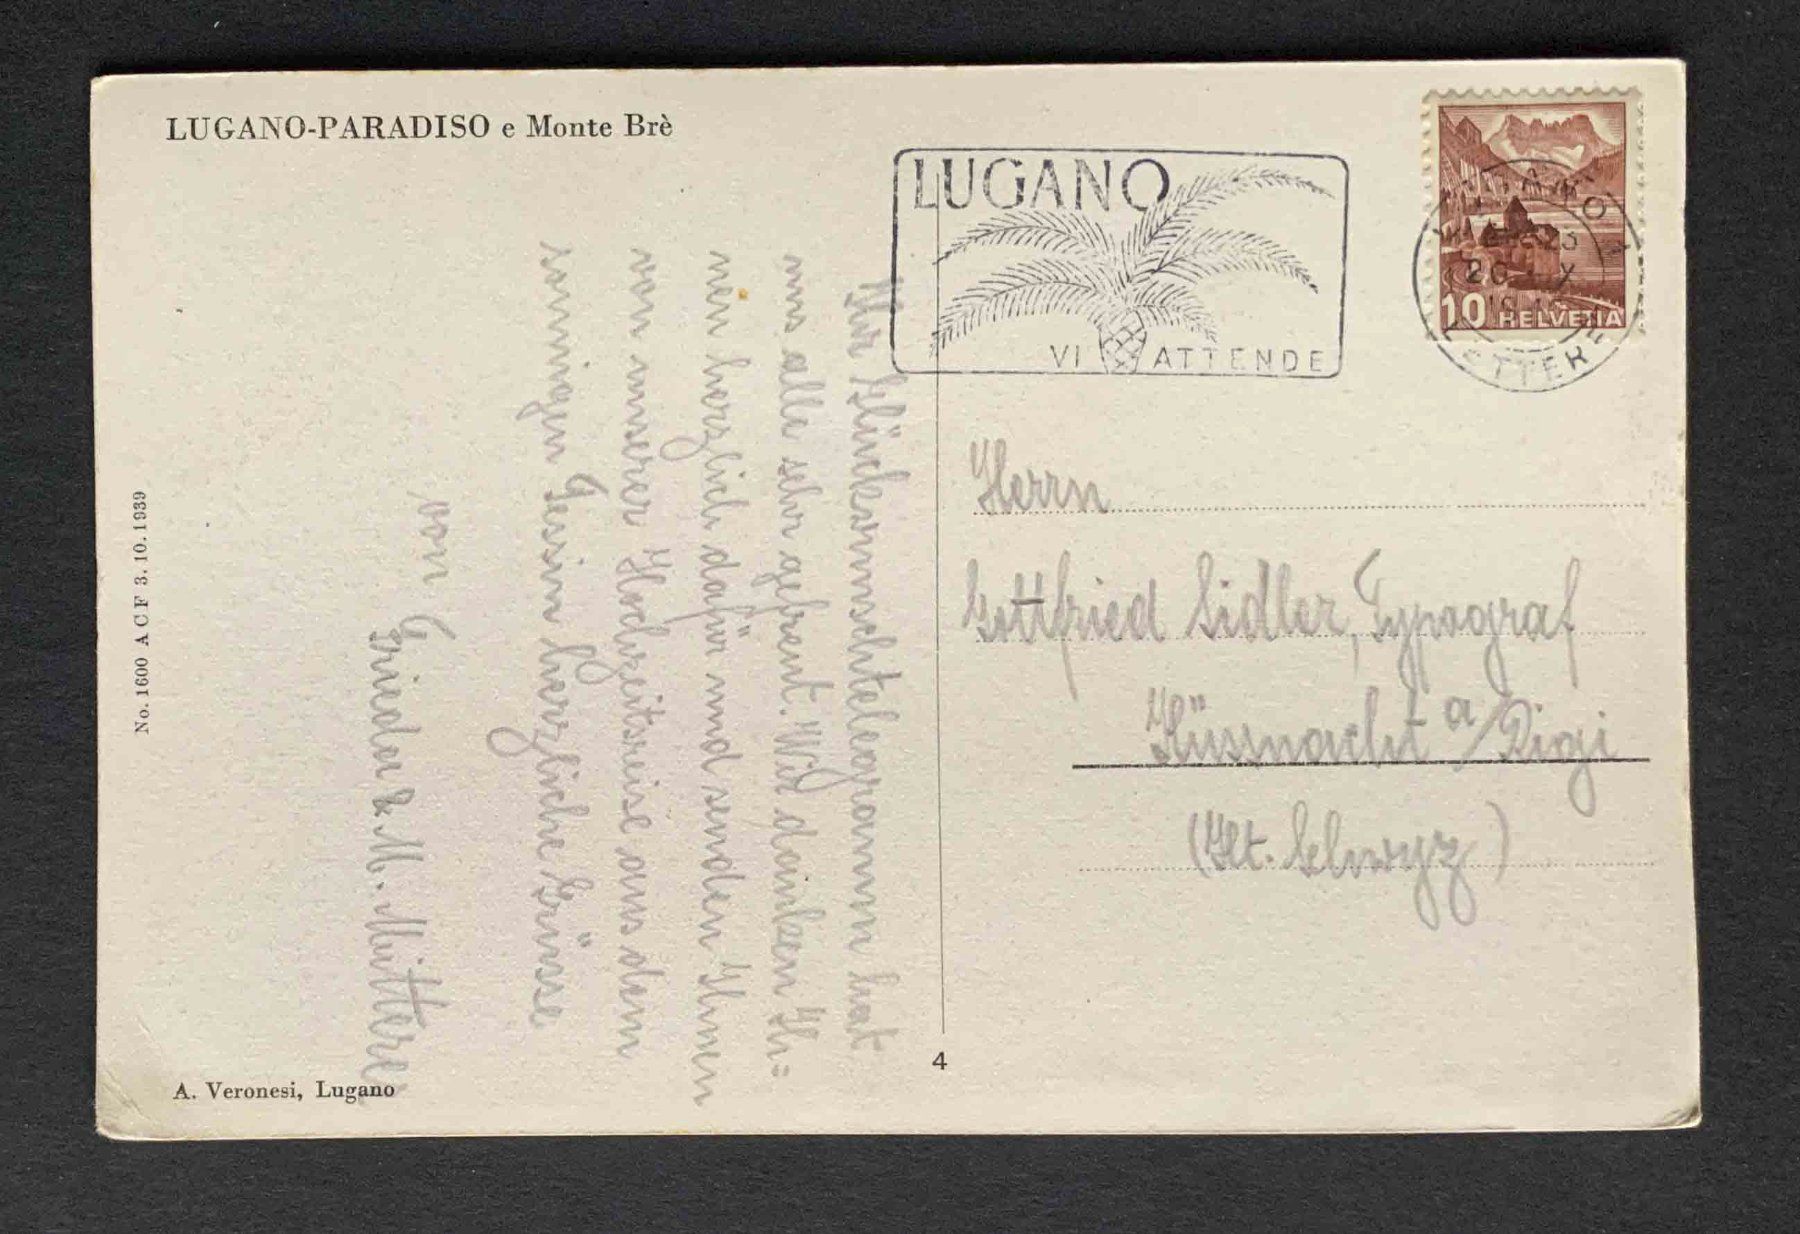 LUGANO-PARADISO e Monte Brè
LUGANO
VI ATTENDE
10 HELVETIA
LETTERE
20 X
Ihr Glückwunschtelegramm hat
uns alle sehr gefreut. Wir danken Ih=
nen herzlich dafür und senden Ihnen
von unserer Hochzeitsreise aus dem
sonnigen Tessin herzliche Grüsse
von Frieda & M.
Herrn
Gottfried Sidler, Typograf
Küssnacht a/Rigi
(Kt. Schwyz)
No. 1600 A C F 3.10.1939
A. Veronesi, Lugano
4